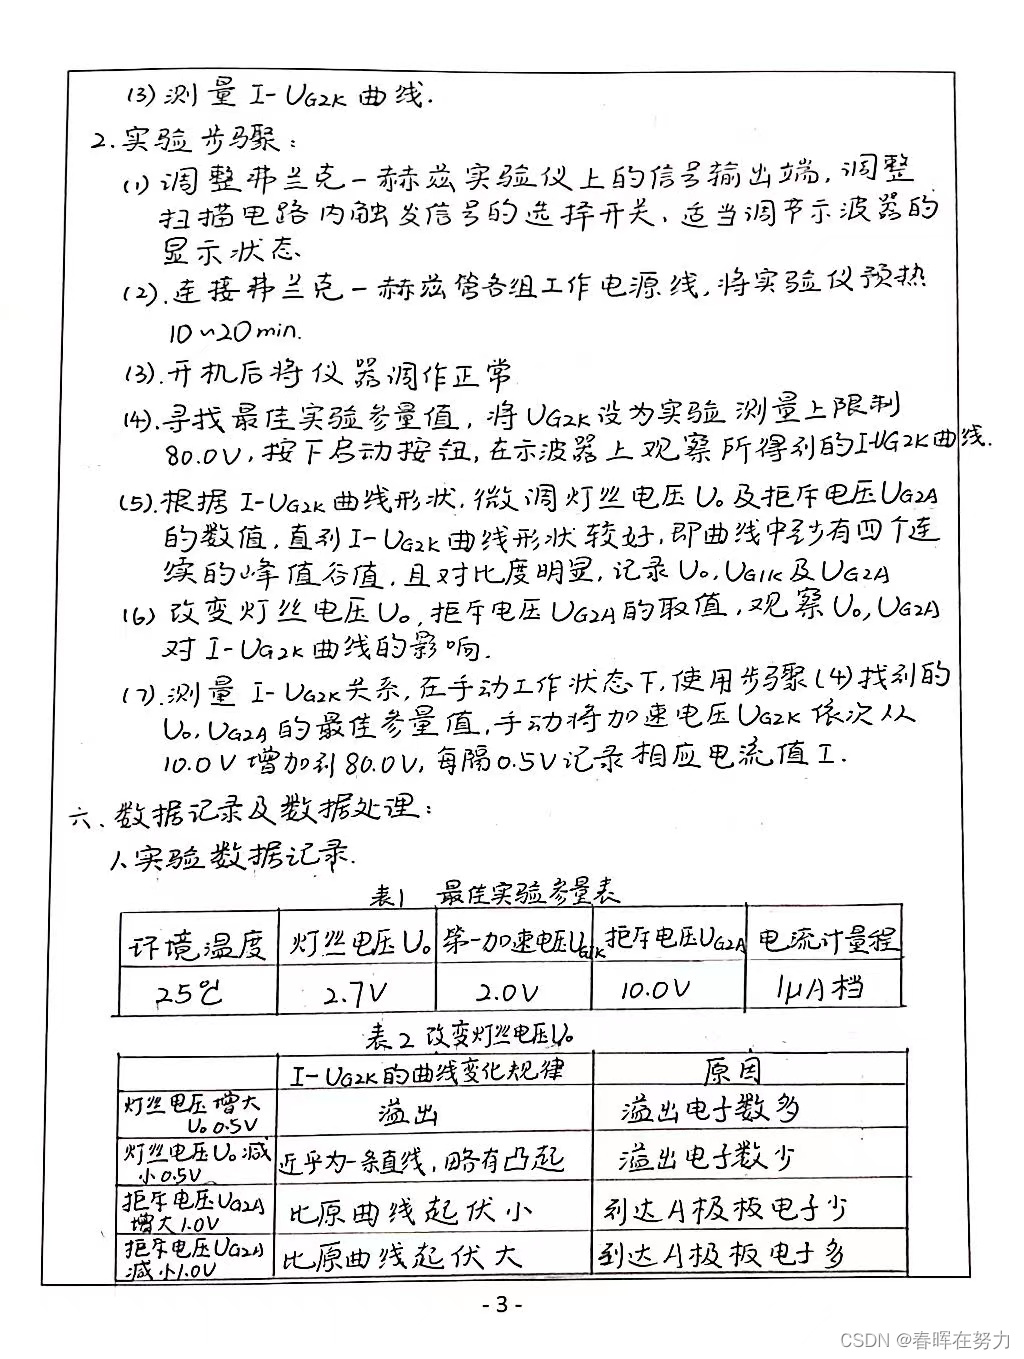 (3) 测量 I-UG2K 曲线.
2.实验步骤:
(1) 调整弗兰克-赫兹实验仪上的信号输出端,调整
扫描电路内触发信号的选择开关,适当调节示波器的
显示状态
(2).连接弗兰克-赫兹管各组工作电源线,将实验仪预热
10~20min.
(3).开机后将仪器调作正常
(4).寻找最佳实验参量值,将UG2K设为实验测量上限制
80.0V,按下启动按钮,在示波器上观察所得到的I-UG2K曲线.
(5).根据I-UG2K曲线形状,微调灯丝电压U₀及拒斥电压UG2A
的数值,直到I-UG2K曲线形状较好,即曲线中至少有四个连
续的峰值谷值,且对比度明显,记录U₀,UG1K及UG2A
(6) 改变灯丝电压U₀,拒斥电压UG2A的取值,观察U₀,UG2A
对I-UG2K曲线的影响.
(7).测量I-UG2K关系,在手动工作状态下,使用步骤(4)找到的
U₀,UG2A的最佳参量值,手动将加速电压UG2K依次从
10.0V增加到80.0V,每隔0.5V记录相应电流值I.
六.数据记录及数据处理:
1.实验数据记录.
表1 最佳实验参量表
环境温度 灯丝电压U₀ 第一加速电压UG1K 拒斥电压UG2A 电流计量程
25℃ 2.7V 2.0V 10.0V 1μA档
表2 改变灯丝电压U₀
I-UG2K的曲线变化规律 原因
灯丝电压增大
U₀ 0.5V 溢出 溢出电子数多
灯丝电压U₀减
小0.5V 近乎为一条直线,略有凸起 溢出电子数少
拒斥电压UG2A
增大1.0V 比原曲线起伏小 到达A极板电子少
拒斥电压UG2A
减小1.0V 比原曲线起伏大 到达A极板电子多
- 3 -
CSDN @春晖在努力